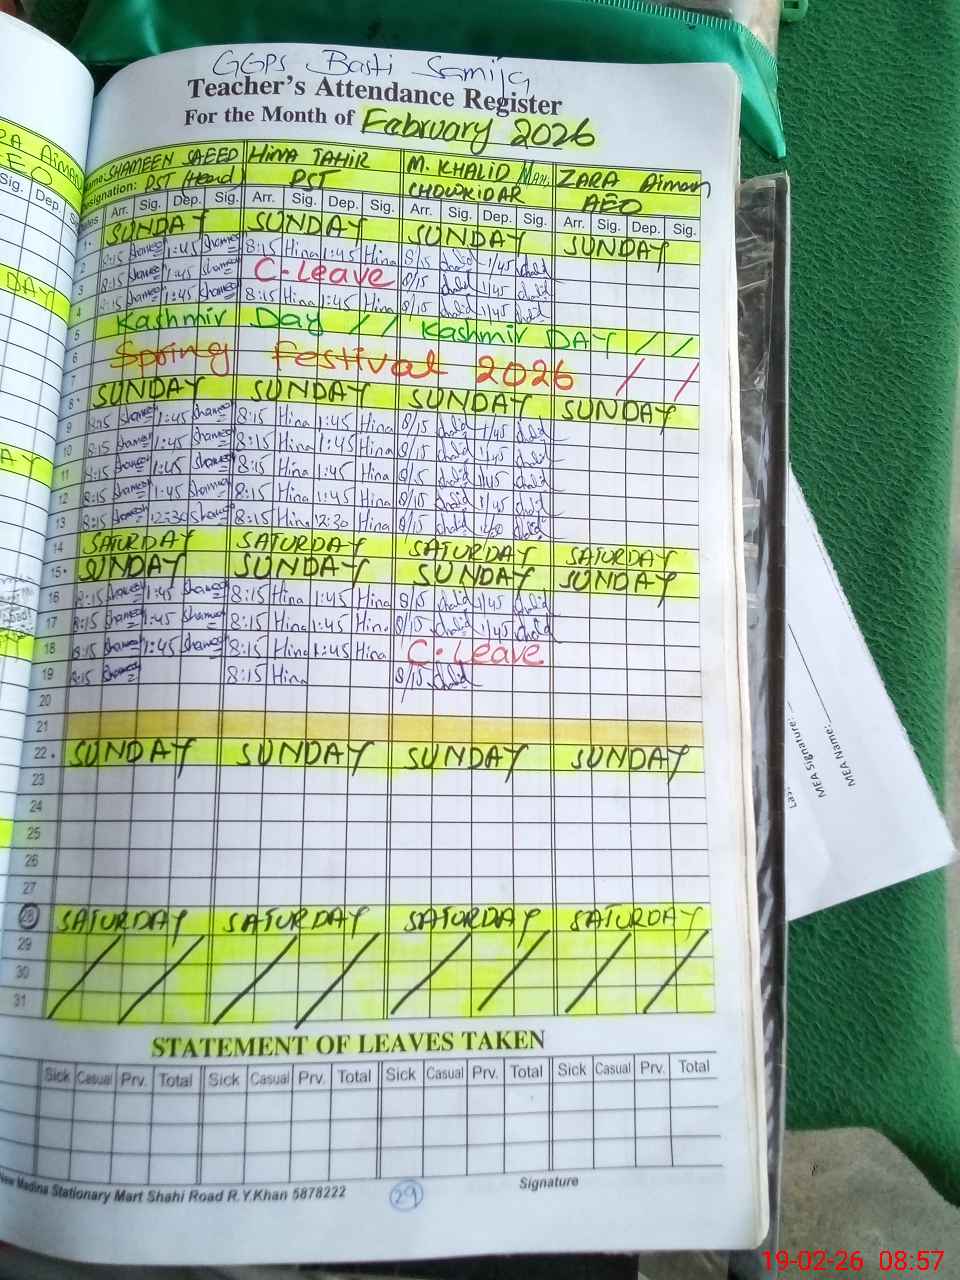 GGPS Basti Samija
Teacher's Attendance Register
For the Month of Fabruary 2026
Name: SHAMEEN SAEED HINA TAHIR M. KHALID ZARA Aiman
Designation: PST (Head) PST CHOWKIDAR AEO
Arr. Sig. Dep. Sig. Arr. Sig. Dep. Sig. Arr. Sig. Dep. Sig. Arr. Sig. Dep. Sig.
1 SUNDAY SUNDAY SUNDAY SUNDAY
2 8:15 Shameen 1:45 Shameen 8:15 Hina 1:45 Hina 8/15 Khalid 1/45 Khalid
3 8:15 Shameen 1:45 Shameen C-Leave 8/15 Khalid 1/45 Khalid
4 8:15 Shameen 1:45 Shameen 8:15 Hina 1:45 Hina 8/15 Khalid 1/45 Khalid
5 Kashmir Day // Kashmir DAY //
6 Spring Festival 2026 / /
7
8 SUNDAY SUNDAY SUNDAY SUNDAY
9 8:15 Shameen 1:45 Shameen 8:15 Hina 1:45 Hina 8/15 Khalid 1/45 Khalid
10 8:15 Shameen 1:45 Shameen 8:15 Hina 1:45 Hina 8/15 Khalid 1/45 Khalid
11 8:15 Shameen 1:45 Shameen 8:15 Hina 1:45 Hina 8/15 Khalid 1/45 Khalid
12 8:15 Shameen 1:45 Shameen 8:15 Hina 1:45 Hina 8/15 Khalid 1/45 Khalid
13 8:15 Shameen 12:30 Shameen 8:15 Hina 12:30 Hina 8/15 Khalid Khalid
14 SATURDAY SATURDAY SATURDAY SATURDAY
15 SUNDAY SUNDAY SUNDAY SUNDAY
16 8:15 Shameen 1:45 Shameen 8:15 Hina 1:45 Hina 8/15 Khalid 1/45 Khalid
17 8:15 Shameen 1:45 Shameen 8:15 Hina 1:45 Hina 8/15 Khalid 1/45 Khalid
18 8:15 Shameen 1:45 Shameen 8:15 Hina 1:45 Hina C-Leave
19 8:15 Shameen 8:15 Hina 8/15 Khalid
20
21
22 SUNDAY SUNDAY SUNDAY SUNDAY
23
24
25
26
27
28 SATURDAY SATURDAY SATURDAY SATURDAY
29
30
31
STATEMENT OF LEAVES TAKEN
Sick Casual Prv. Total Sick Casual Prv. Total Sick Casual Prv. Total Sick Casual Prv. Total
New Madina Stationary Mart Shahi Road R.Y.Khan 5878222
29
Signature
MEA Signature:
MEA Name:
19-02-26 08:57